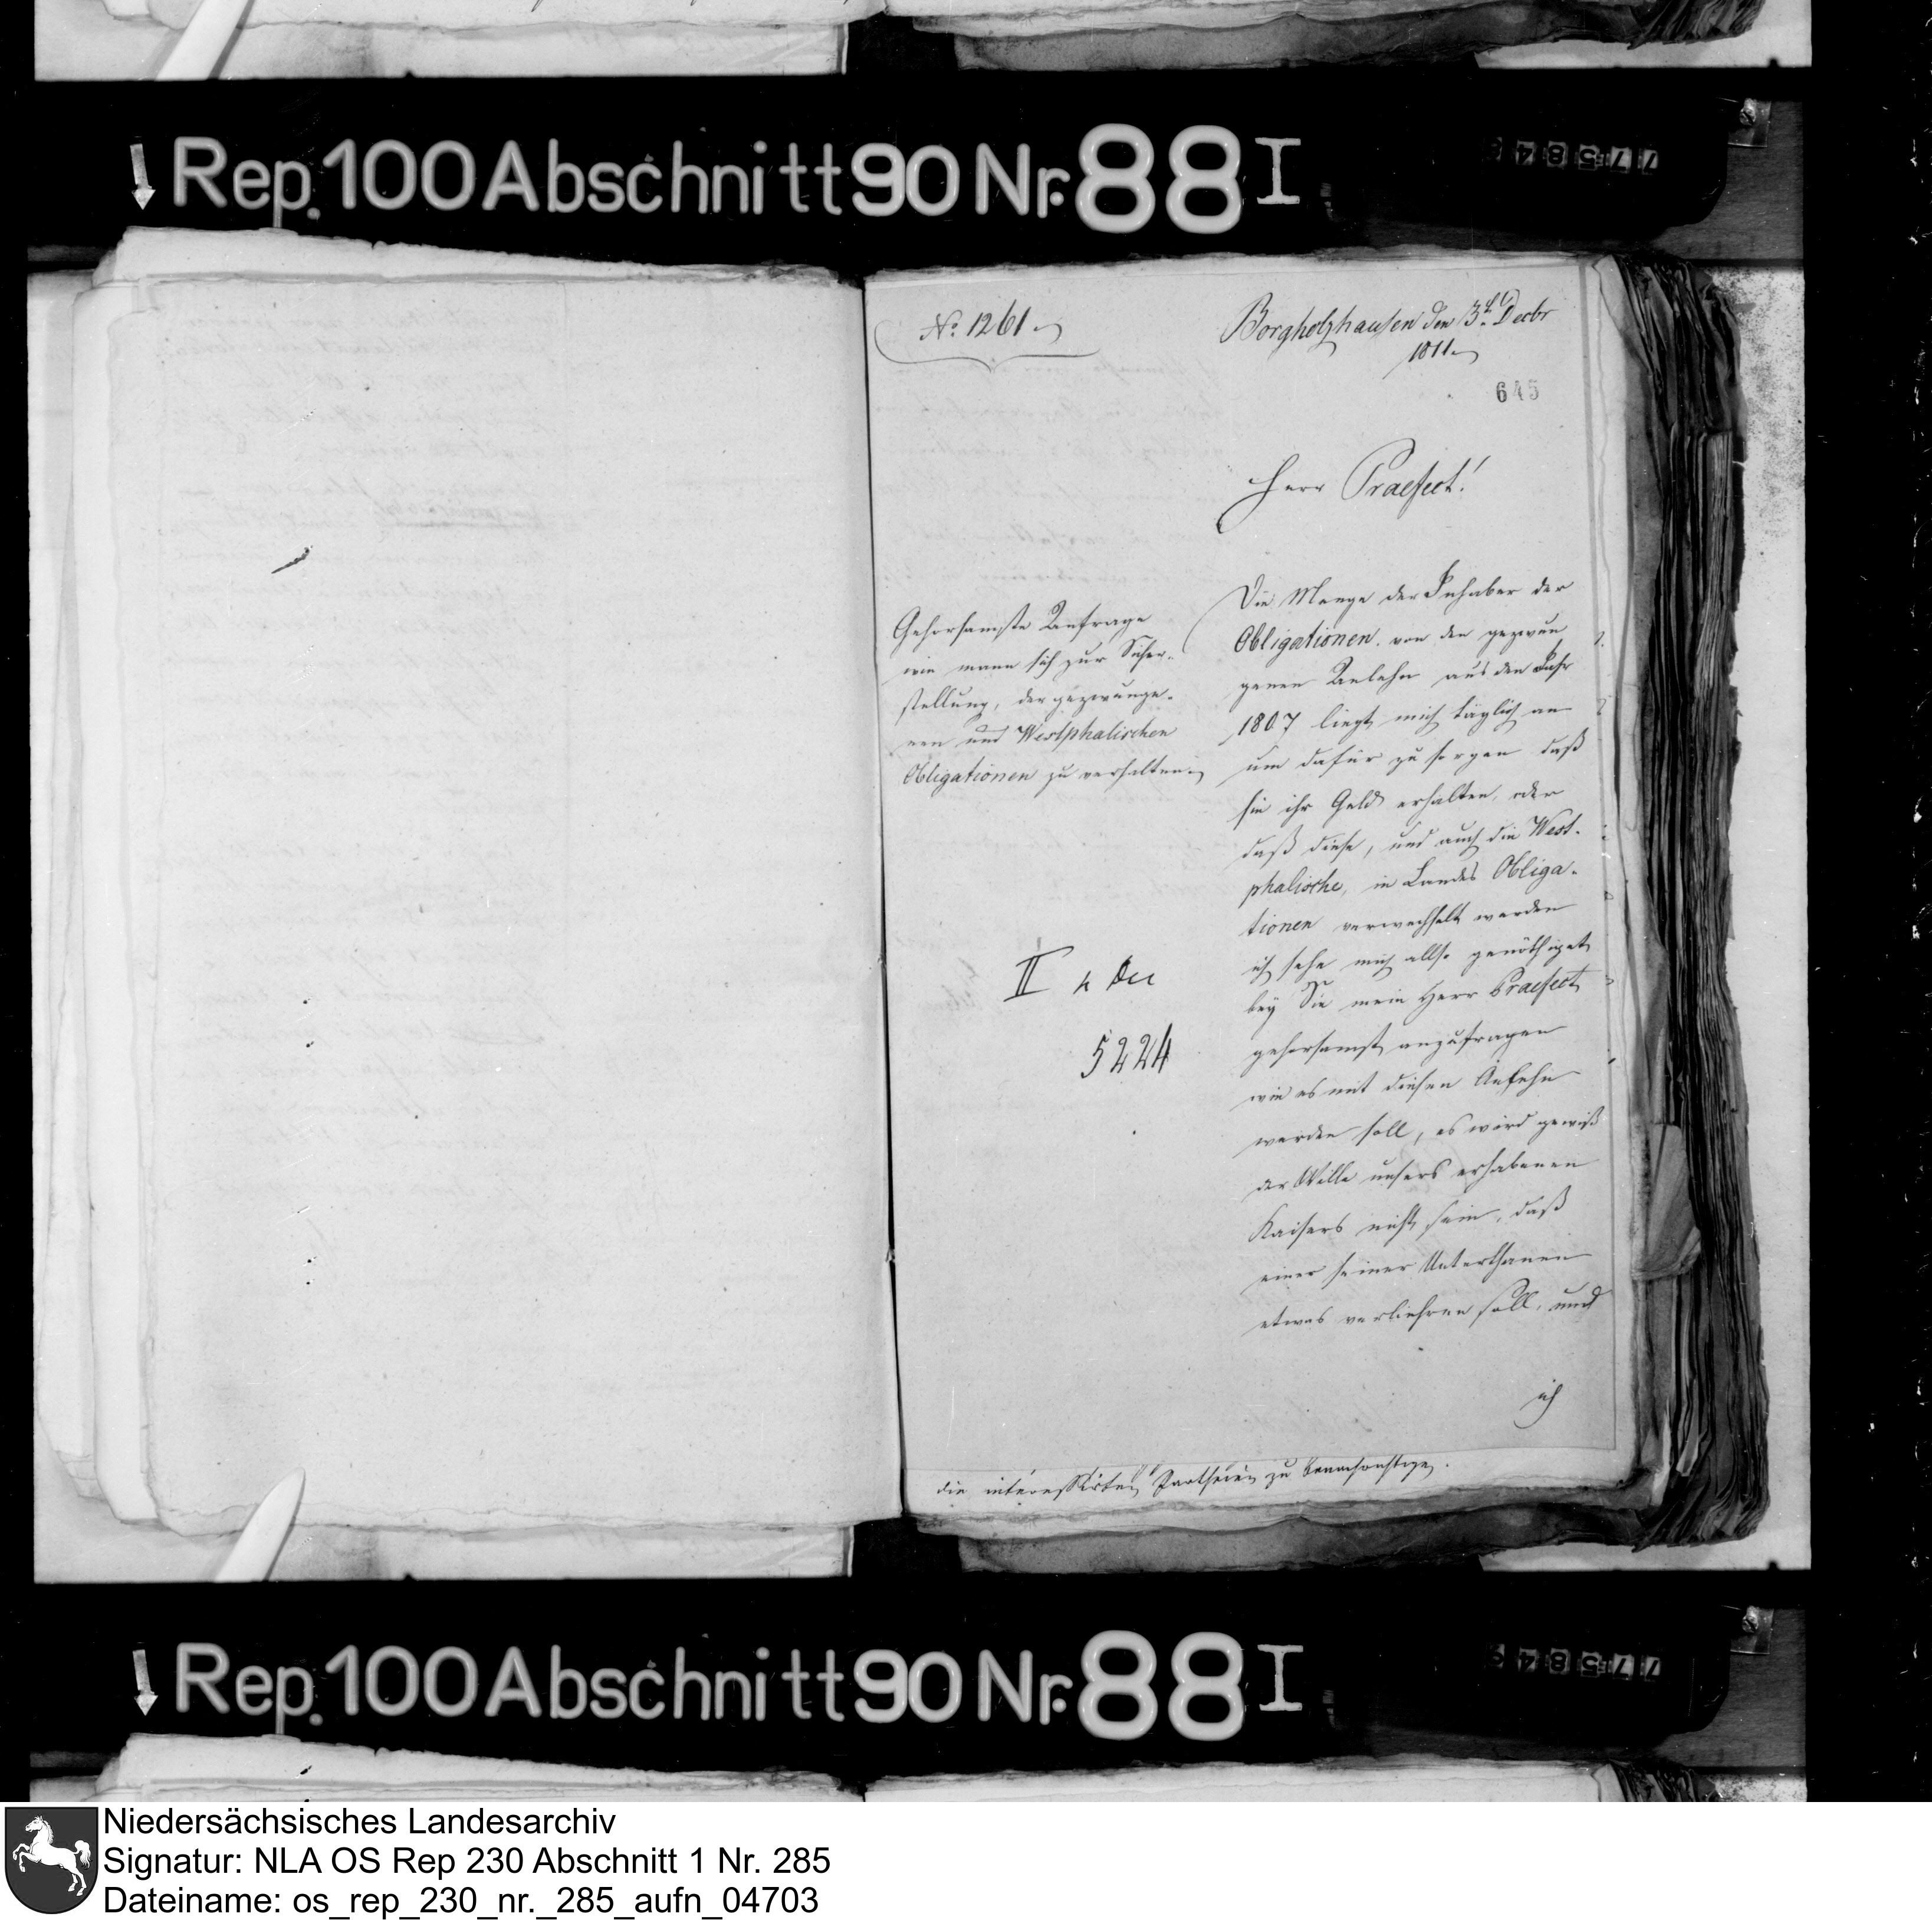 Rep. 100 Abschnitt 90 Nr. 88 I
77584
No. 1261
Borgholzhausen den 3t Decbr
1811
645
Herr Praefect!
Gehorsamste Anfrage
wie mann sich zur Sicher-
stellung, der gezwunge-
nen und Westphalischen
Obligationen zu verhalten
II
5224
Die Menge der Inhaber der
Obligationen von den gezwun
genen Anlehn aus den Jahr
1807 liegt mich täglich an
um dafür zu sorgen daß
sie ihr Geld erhalten, oder
daß diese, und auch die West-
phalische, in Landes Obliga-
tionen verwechselt werden
ich sehe mich allso genöthiget
bey Sie mein Herr Praefect
gehorsamst anzufragen
wie es mit diesen Anlehn
werden soll, es wird gewiß
der Wille unsers erhabenen
Kaisers nicht sein, daß
einer seiner Unterthanen
etwas verliehren soll, und
ich
die interessirten Partheien zu benachrichtigen.
Rep. 100 Abschnitt 90 Nr. 88 I
77584
Niedersächsisches Landesarchiv
Signatur: NLA OS Rep 230 Abschnitt 1 Nr. 285
Dateiname: os_rep_230_nr._285_aufn_04703